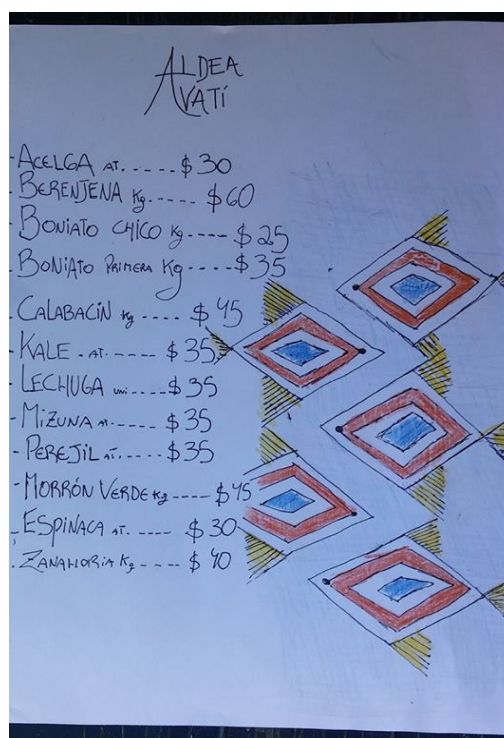 ALDEA
AVATÍ
-ACELGA AT. ----- $30
-BERENJENA Kg. ----- $60
-BONIATO CHICO Kg ---- $25
-BONIATO PRIMERA Kg ---- $35
-CALABACÍN Kg ---- $45
-KALE - AT. ----- $35
-LECHUGA uni ---- $35
-MIZUNA AT. ----- $35
-PEREJIL AT. ----- $35
-MORRÓN VERDE Kg ---- $45
-ESPINACA AT. ---- $30
-ZANAHORIA Kg ---- $40